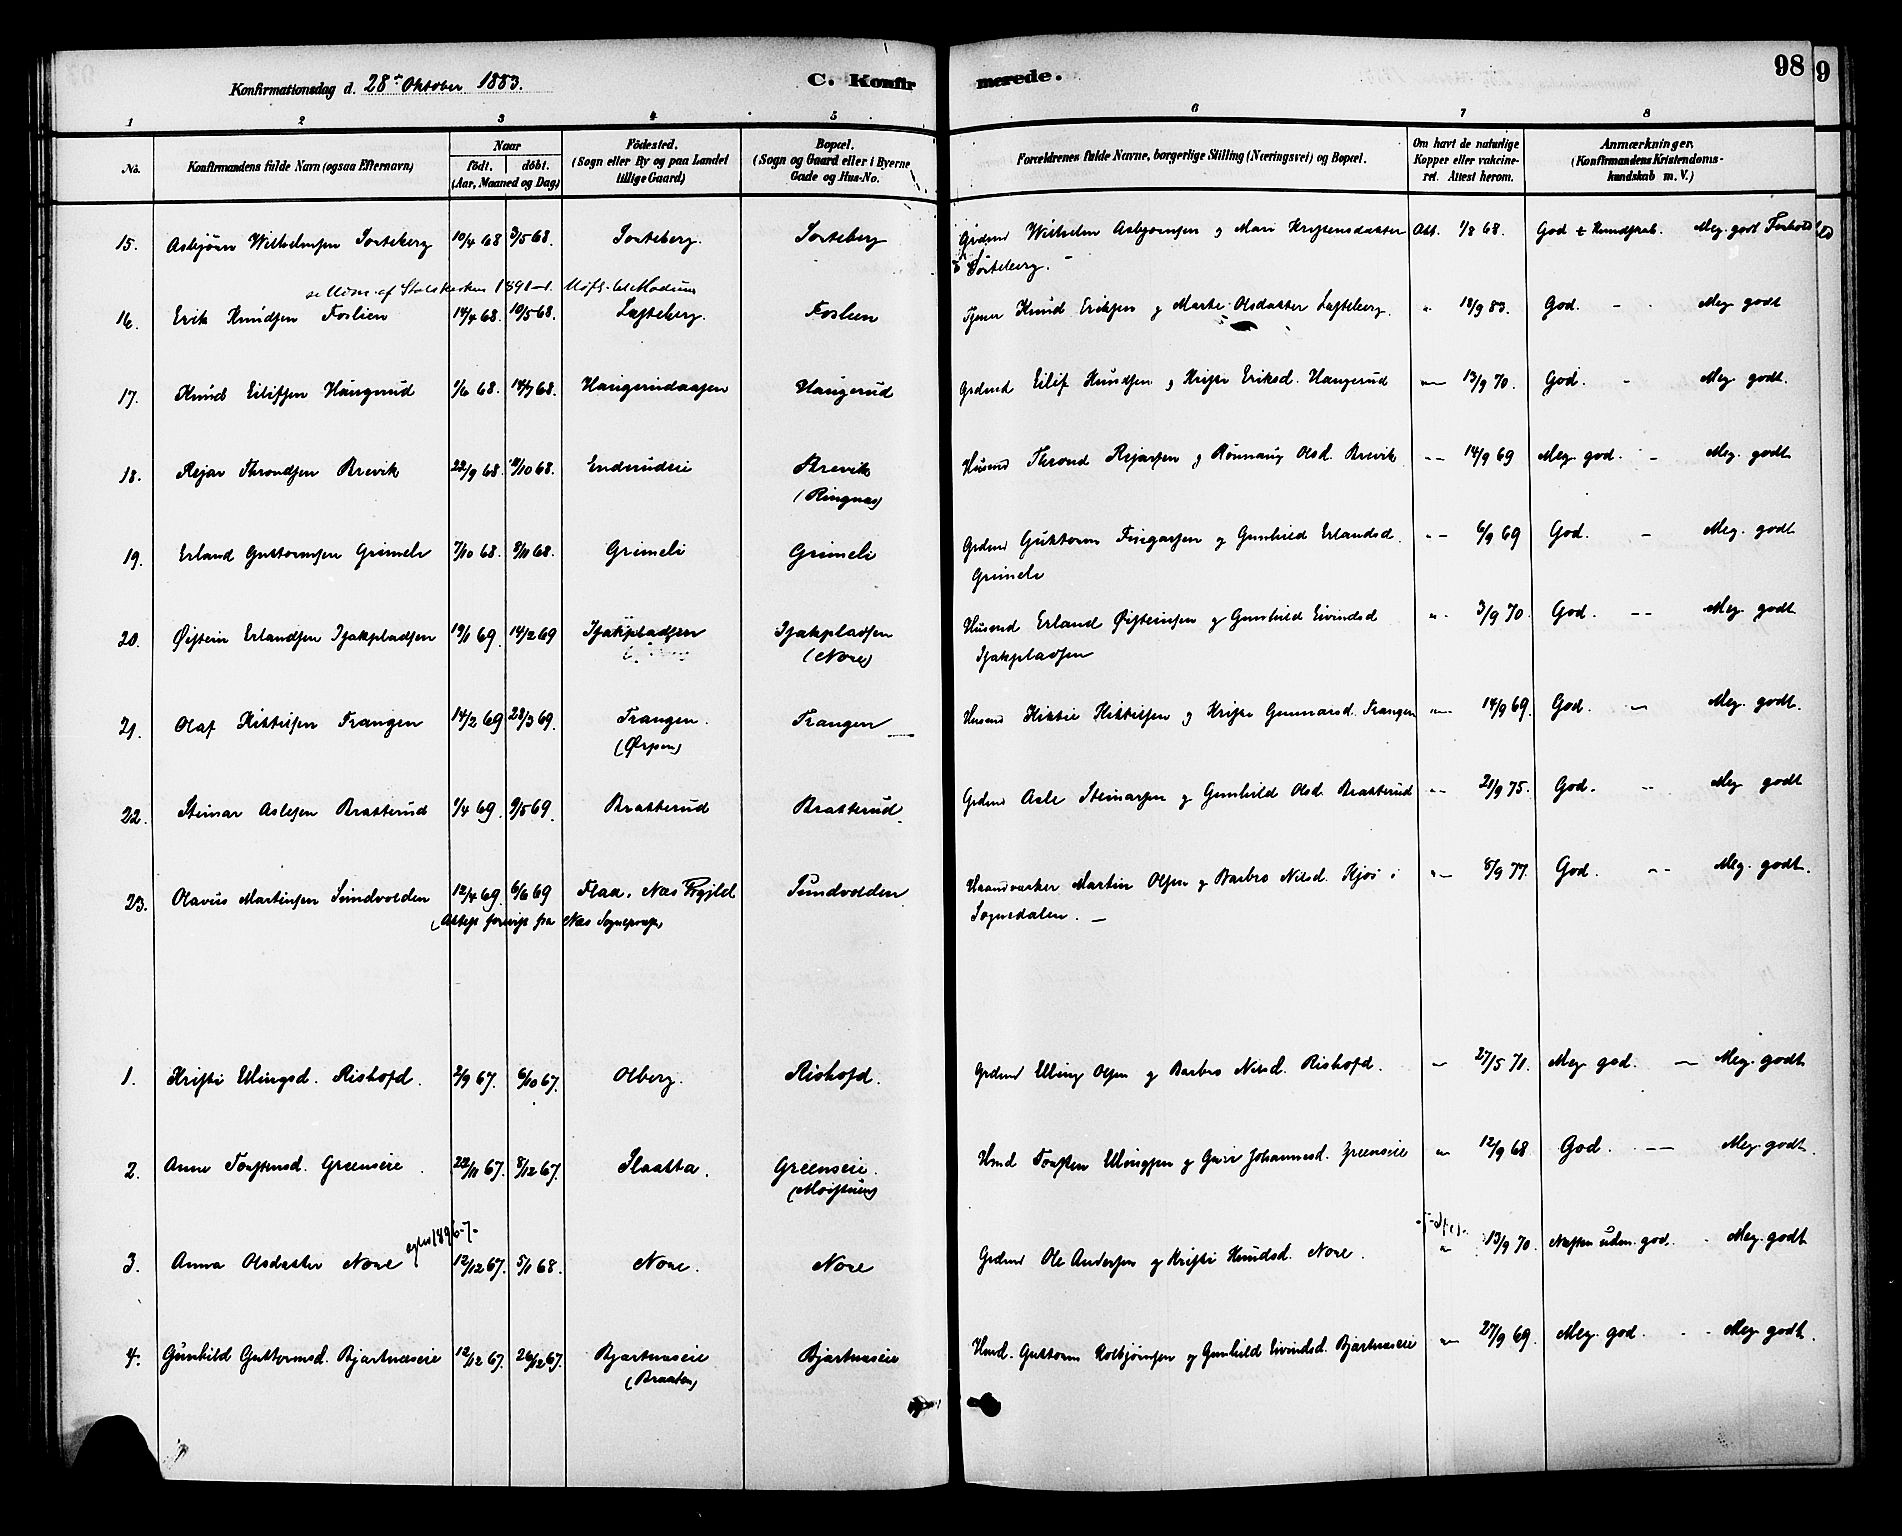 Konfirmationsdag d. 28de Oktober 1883.
C. Konfirmerede.
98
9
1 2 3 4 5 6 7 8
No.
Konfirmandens fulde Navn (ogsaa Efternavn)
Naar
födt. döbt.
(Aar, Maaned og Dag)
Födested.
(Sogn eller By og paa Landet
tillige Gaard)
Bopæl.
(Sogn og Gaard eller i Byerne
Gade og Hus-No.
Forældrenes fulde Navne, borgerlige Stilling (Næringsvei) og Bopæl.
Om havt de naturlige
Kopper eller vakcine-
ret. Attest herom.
Anmærkninger.
(Konfirmandens Kristendoms-
kundskab m. V.)
15. Asbjörn Wilhelmsen Sorteberg 10/4 68 3/5 68. Sorteberg. Sorteberg Grdmd Wilhelm Asbjørnsen g Mari Kristensdatter Att. 1/8 68. God Kundskab. Meg. godt Forhold
Sorteberg.
se Udm. af Statskirken 1891 Udfl. til Modum
16. Erik Knudsen Foslien 14/4 68. 10/5 68. Lofteberg. Foslien Tjener Knud Eriksen g Marte Olsdatter Lofteberg. " 12/9 83. God. - - Meg godt
17. Knud Eilifsen Haugerud 1/6 68. 14/7 68. Haugerudaasen Haugerud Grdmd Eilif Knudsen g Kristi Eriksd. Haugerud " 13/9 70. God. - Meg godt.
18. Rejar Throndsen Brevik 22/9 68. /10 68. Enderudeie Brevik Husmd Thrond Rejarsen g Rönnaug Olsd. Brevik " 14/9 69 Meg. god. - Meg. godt
(Ringnæs)
19. Erland Guttormsen Grimeli 7/10 68. 9/11 68. Grimeli Grimeli Grdmd Guttorm Fingarsen g Gunhild Erlandsd. " 6/9 69 God. - Meg. godt
Grimeli
20. Øistein Erlandsen Isakpladsen 19/1 69. 14/2 69 Isakpladsen Isakpladsen Husmd Erland Øisteinsen g Gunhild Eivindsd " 3/9 70. God. -- Meg. godt
(Nore) Isakpladsen
21. Olaf Kittilsen Trangen 14/2 69 28/3 69. Trangen. Trangen Husmd Kittil Kittilsen g Kristi Gunnarsd. Trangen " 14/9 69. God. - Meg. godt.
(Ørpen)
22. Steinar Aslesen Bratterud 1/4 69. 9/5 69. Bratterud Bratterud. Grdmd Asle Steinarsen g Gunhild Olsd. Bratterud " 21/9 75. God. " Meg godt
23. Olavus Martinsen Sundvolden 12/4 69. 6/6 69 Flaa, Næs Prgjld Sundvolden Haandværker Martin Olsen g Barbro Nilsd. Kjøs i " 8/9 77. God. -- Meg. godt.
(Attest forevist fra Næs Sogneprest) Sognedalen. -
1. Kristi Ellingsd. Rishofd. 2/9 67. 6/10 67. Olberg. Rishofd. Grdmd Elling Olsen g Barbro Nilsd. Rishofd. " 27/5 71. Meg. god. - Meg. godt
2. Anne Torstensd. Greenseie. 22/11 67. 8/12 67. Slaatta. Greenseie. Hmd Torsten Ellingsen g Guri Johannesd. Greenseie " 12/9 68. God. -- Meg. godt.
3. Anna Olsdatter Nore 12/12 67. 5/1 68. Nore. Nore Grdmd Ole Andersen g Kristi Knudsd. Nore. " 13/9 70. Næsten uden god. - Meg. godt
4. Gunhild Guttormsd. Bjertnæseie 12/12 67. 26/12 67. Bjertnæseie Bjertnæseie Hmd. Guttorm Kolbjørnsen g Gunhild Eivindsd. Bjertnæseie " 27/9 69. Meg. god. - - Meg. godt.
(Braaten)